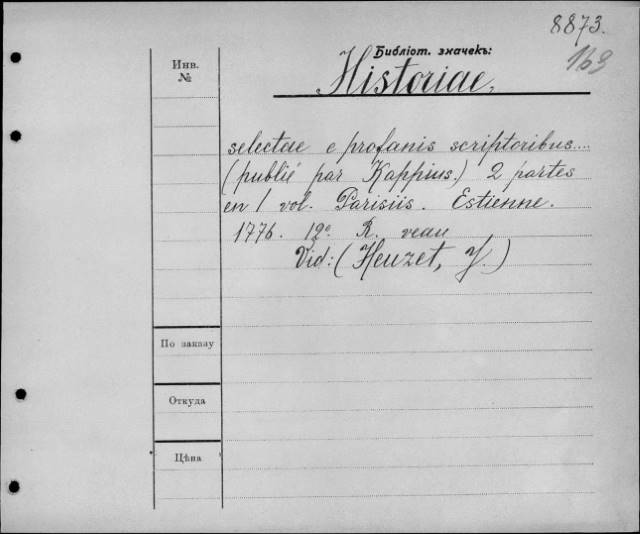 8873.
169
Библіот. значекъ:
Инв.
№
Historiae,
selectae e profanis scriptoribus....
(publié par Kappius.) 2 partes
en 1 vol. Parisiis. Estienne.
1776. 12º. R. veau
Vid: (Heuzet, J.)
По заказу
Откуда
Цѣна